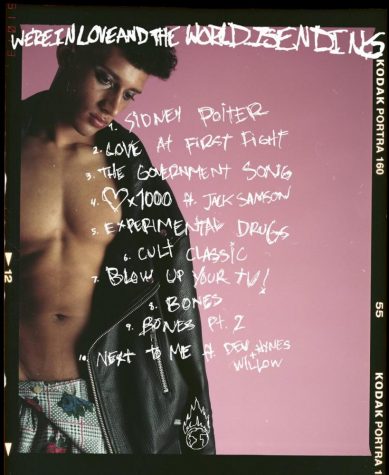 WERE IN LOVE AND THE WORLD IS ENDING
KODAK PORTRA 160
1. SIDNEY POITER
2. LOVE AT FIRST FIGHT
3. THE GOVERNMENT SONG
4. ♡x1000 ft. JACK SAMSON
5. EXPERIMENTAL DRUGS
6. CULT CLASSIC
7. BLOW UP YOUR TV!
8. BONES
9. BONES Pt. 2
10. NEXT TO ME ft. DEV HYNES
+ WILLOW
12
55
KODAK PORTRA 1